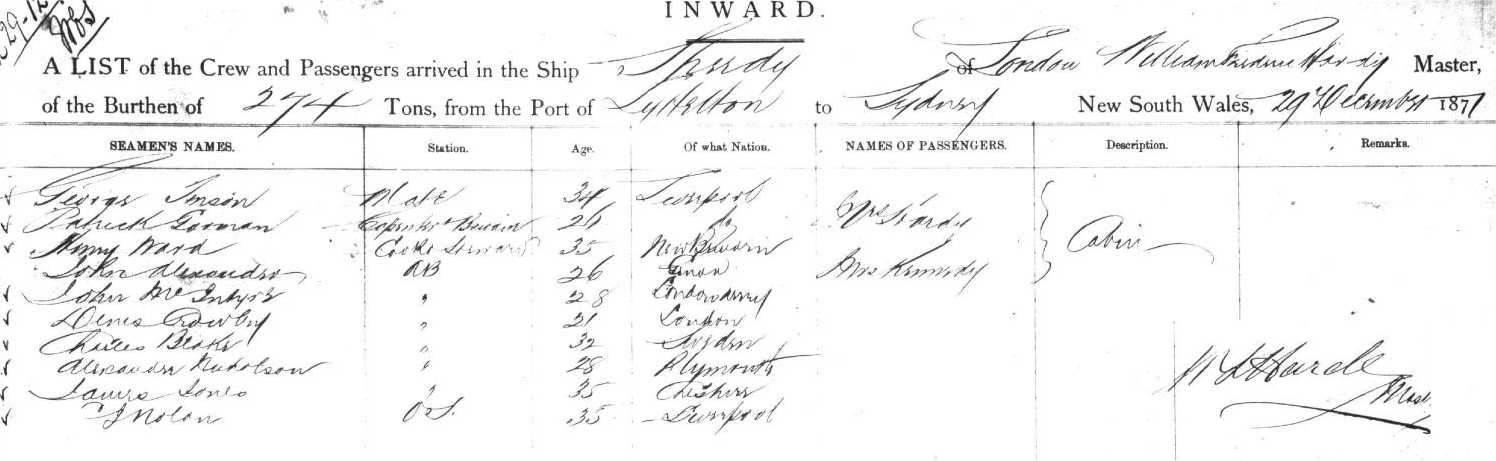 29-12
INWARD.
A LIST of the Crew and Passengers arrived in the Ship Speedy of London William Frederic Hardy Master,
of the Burthen of 274 Tons, from the Port of Lyttelton to Sydney New South Wales, 29th December 1871
SEAMEN'S NAMES. Station. Age. Of what Nation. NAMES OF PASSENGERS. Description. Remarks.
George Imson Mate 34 Liverpool
Patrick Gorman Carpenter 26 do Mrs Hardy
Henry Ward Cook & Steward 35 Cabin
John Alexander AB 26 Mrs Kennedy
John McIntyre " 28 Londonderry
Denis Crowley " 21 London
Charles Blake " 32 Sweden
Alexander Nicholson " 28 Plymouth
James Jones " 35 Cheshire
Nolan O.S. 35 Liverpool
Mas